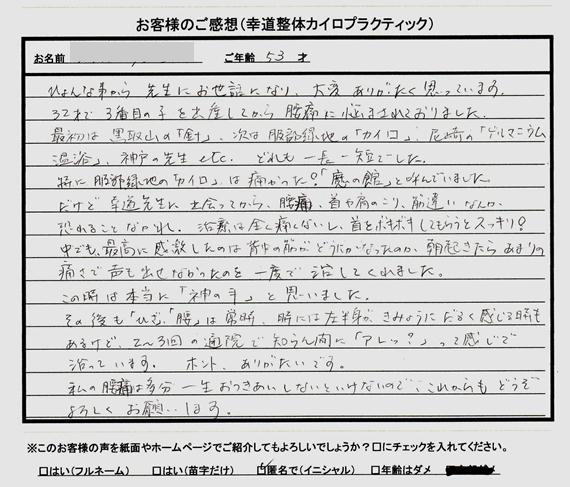 お客様のご感想(幸道整体カイロプラクティック)
お名前 ご年齢 53 才
ひょんな事から 先生にお世話になり、大変 ありがたく思っています。
32才で 3番目の子を出産してから 腰痛に悩まされておりました。
最初は 黒取山の「針」、次は 服部緑地の「カイロ」、尼崎の「ゲルマニウム
温浴」、神戸の先生 etc. どれも 一長一短でした。
特に 服部緑地の「カイロ」は 痛かった!?「魔の館」と呼んでいました。
だけど 幸道先生に出会ってから、腰痛、首や肩のこり、筋違いなんか、
恐れることなかれ。 治療は全く痛くないし、首をボキボキしてもらうとスッキリ!
中でも、最高に感激したのは 背中の筋がどうにかなったのか、朝起きたら あまりの
痛さで 声も出せなかったのを 一度で 治してくれました。
この時は 本当に「神の手」と 思いました。
その後も「ひざ」「腰」は 常時、時には左半身が、きみょうに だるく 感じる時も
あるけど、2〜3回の通院で 知らん内に「アレッ?」って 感じで
治っています。 ホント、ありがたいです。
私の腰痛は多分 一生 おつきあいしないといけないので、これからも どうぞ
よろしく お願いします。
※このお客様の声を紙面やホームページでご紹介してもよろしいでしょうか?□にチェックを入れてください。
□はい(フルネーム) □はい(苗字だけ) ☑匿名で(イニシャル) □年齢はダメ